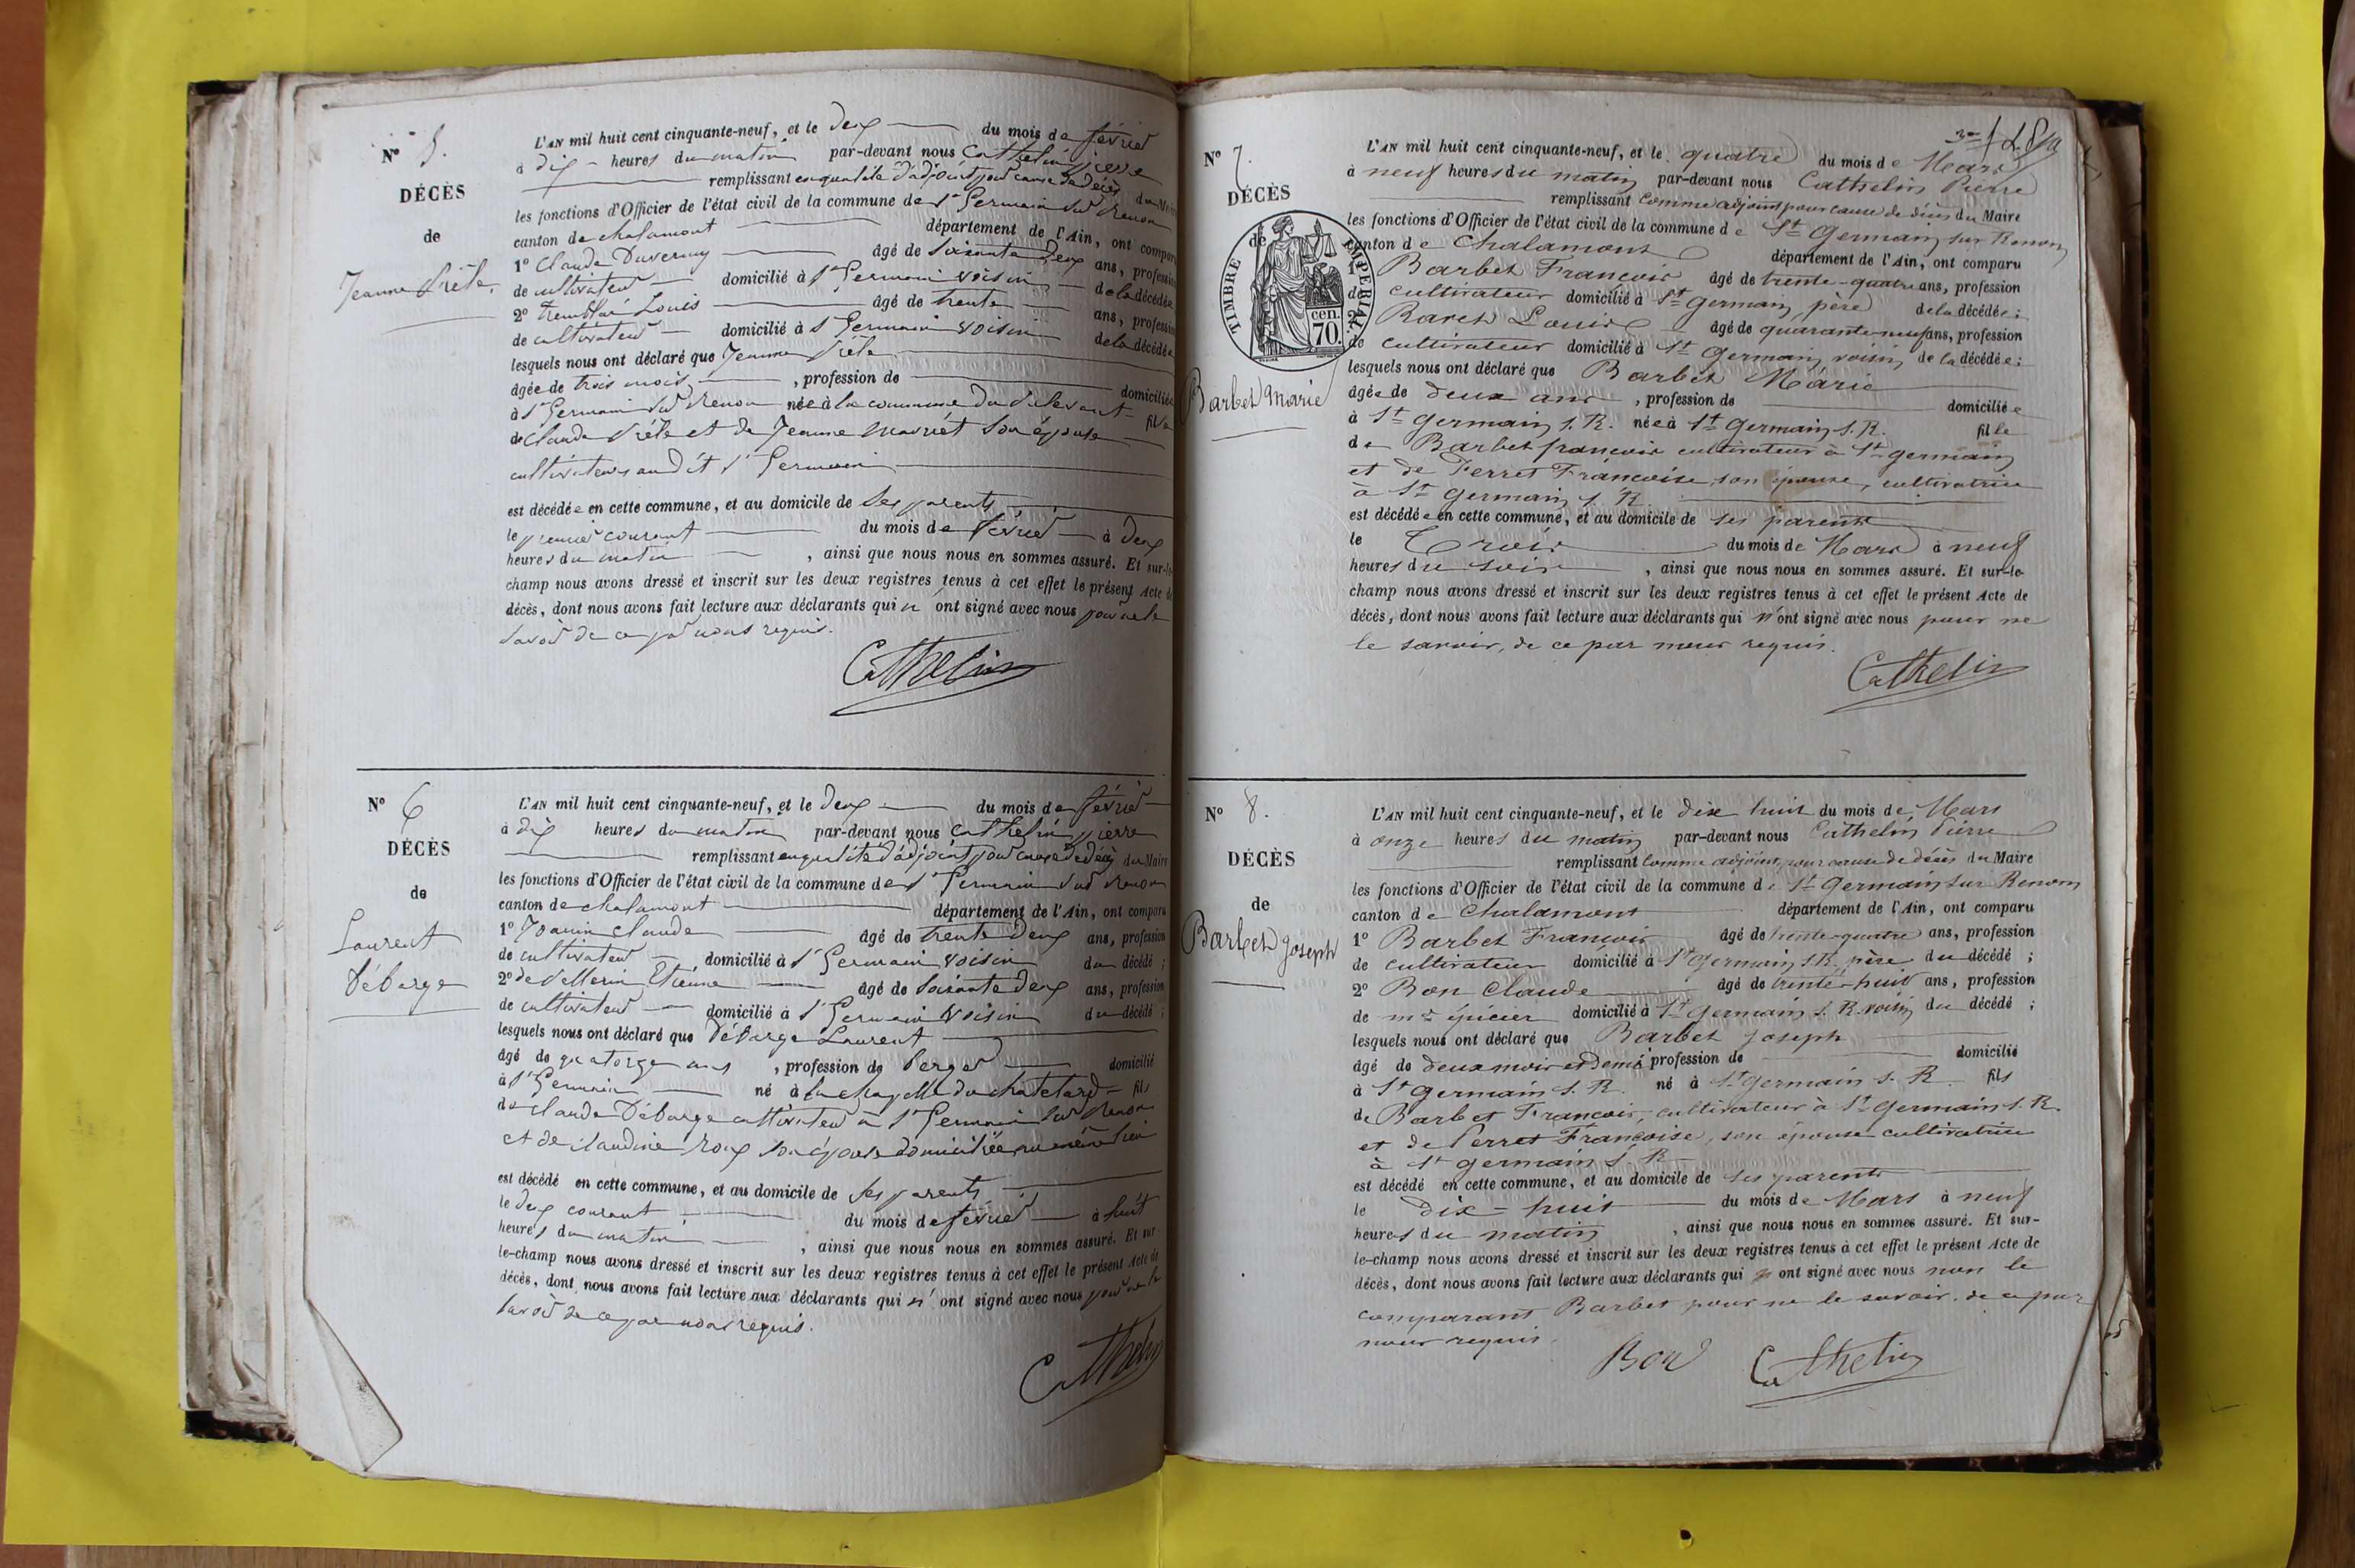 N° 5.
DÉCÈS
de
Jeanne
L'AN mil huit cent cinquante-neuf, et le deux du mois de février
à dix heures du matin par-devant nous Cathelin pierre
remplissant en qualité d'adjoint pour cause de décès du Maire
les fonctions d'Officier de l'état civil de la commune de St Germain sur Renon
canton de chalamont département de l'Ain, ont comparu
1° Claude Duvernay âgé de soixante deux ans, profession
de cultivateur domicilié à St Germain voisin de la décédée
2° Louis âgé de trente ans, profession
de cultivateur domicilié à St Germain voisin de la décédée
lesquels nous ont déclaré que Jeanne
âgée de trois mois, profession de domiciliée
à St Germain sur Renon née à la commune du fille
de Claude et de Jeanne son épouse
cultivateurs audit St Germain
est décédée en cette commune, et au domicile de ses parents
le premier courant du mois de février à deux
heures du matin, ainsi que nous nous en sommes assuré. Et sur-le-
champ nous avons dressé et inscrit sur les deux registres tenus à cet effet le présent Acte de
décès, dont nous avons fait lecture aux déclarants qui n'ont signé avec nous pour ne le
savoir de ce par nous requis.
Cathelin
N° 6
DÉCÈS
de
Laurent
Débarge
L'AN mil huit cent cinquante-neuf, et le deux du mois de février
à dix heures du matin par-devant nous Cathelin pierre
remplissant en qualité d'adjoint pour cause de décès du Maire
les fonctions d'Officier de l'état civil de la commune de St Germain sur Renon
canton de chalamont département de l'Ain, ont comparu
1° Joanin claude âgé de trente deux ans, profession
de cultivateur domicilié à St Germain voisin du décédé ;
2° Etienne âgé de soixante deux ans, profession
de cultivateur domicilié à St Germain voisin du décédé ;
lesquels nous ont déclaré que Débarge Laurent
âgé de quatorze ans, profession de berger domicilié
à St Germain né à la chapelle du chatelard fils
de claude Débarge cultivateur à St Germain sur Renon
et de claudine roux son épouse domiciliée au même lieu
est décédé en cette commune, et au domicile de ses parents
le deux courant du mois de février à huit
heures du matin, ainsi que nous nous en sommes assuré. Et sur-
le-champ nous avons dressé et inscrit sur les deux registres tenus à cet effet le présent Acte de
décès, dont nous avons fait lecture aux déclarants qui n'ont signé avec nous pour ne le
savoir de ce par nous requis.
Cathelin
N° 7.
DÉCÈS
de
TIMBRE IMPERIAL
cen.
70.
Barbet Marie
L'AN mil huit cent cinquante-neuf, et le quatre du mois de Mars
à neuf heures du matin par-devant nous Cathelin Pierre
remplissant comme adjoint pour cause de décès du Maire
les fonctions d'Officier de l'état civil de la commune de St Germain sur Renon
canton de Chalamont département de l'Ain, ont comparu
1° Barbet François âgé de trente-quatre ans, profession
de cultivateur domicilié à St Germain, père de la décédée ;
2° Louis âgé de quarante-neuf ans, profession
de cultivateur domicilié à St Germain, voisin de la décédée ;
lesquels nous ont déclaré que Barbet Marie
âgée de deux ans, profession de domiciliée
à St Germain s. R. née à St Germain s. R. fille
de Barbet françois cultivateur à St germain
et de Perret Françoise, son épouse, cultivatrice
à St germain s. R.
est décédée en cette commune, et au domicile de ses parents
le Trois du mois de Mars à neuf
heures du soir, ainsi que nous nous en sommes assuré. Et sur-le-
champ nous avons dressé et inscrit sur les deux registres tenus à cet effet le présent Acte de
décès, dont nous avons fait lecture aux déclarants qui n'ont signé avec nous pour ne
le savoir, de ce par nous requis.
Cathelin
N° 8.
DÉCÈS
de
Barbet Joseph
L'AN mil huit cent cinquante-neuf, et le dix huit du mois de Mars
à onze heures du matin par-devant nous Cathelin Pierre
remplissant comme adjoint, pour cause de décès du Maire
les fonctions d'Officier de l'état civil de la commune de St Germain sur Renon
canton de Chalamont département de l'Ain, ont comparu
1° Barbet François âgé de trente-quatre ans, profession
de cultivateur domicilié à St germain s. R. père du décédé ;
2° Bon Claude âgé de trente-huit ans, profession
de md épicier domicilié à St germain s. R. voisin du décédé ;
lesquels nous ont déclaré que Barbet Joseph
âgé de deux mois et demi profession de domicilié
à St germain s. R. né à St germain s. R. fils
de Barbet François, cultivateur à St germain s. R.
et de Perret Françoise, son épouse cultivatrice
à St germain s. R.
est décédé en cette commune, et au domicile de ses parents
le dix-huit du mois de Mars à neuf
heures du matin, ainsi que nous nous en sommes assuré. Et sur-
le-champ nous avons dressé et inscrit sur les deux registres tenus à cet effet le présent Acte de
décès, dont nous avons fait lecture aux déclarants qui ont signé avec nous non le
comparant Barbet pour ne le savoir, de ce par
nous requis.
Bon Cathelin